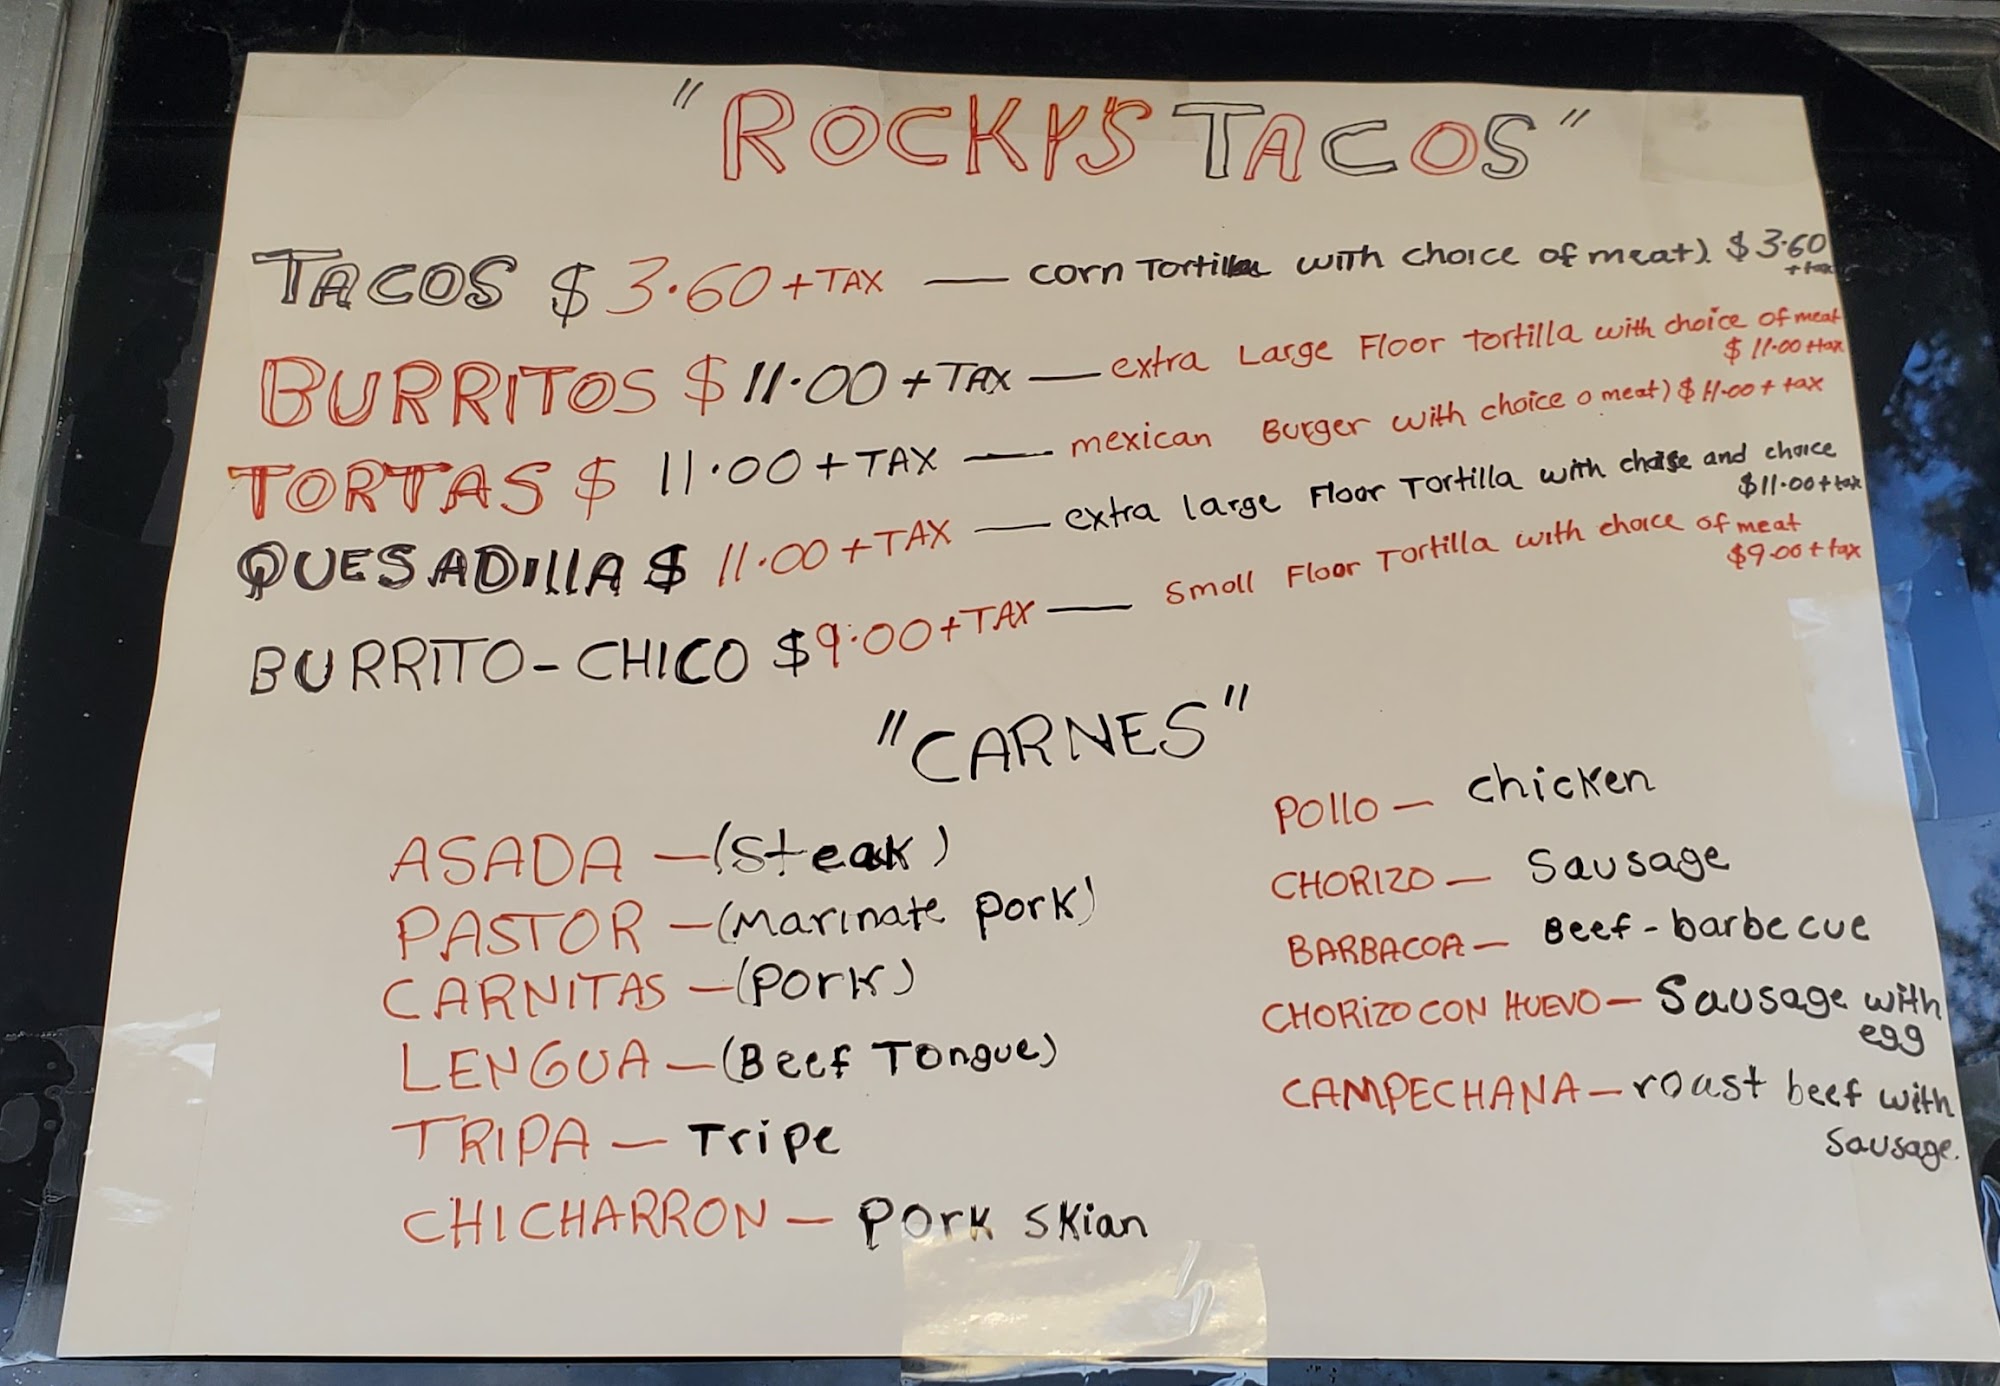 "ROCKY'S TACOS"
TACOS $3.60 + TAX — corn Tortilla with choice of meat) $3.60
+ tax
BURRITOS $11.00 + TAX — extra Large Floor tortilla with choice of meat
$11.00 + tax
TORTAS $11.00 + TAX — mexican Burger with choice o meat) $11.00 + tax
QUESADIllA $11.00 + TAX — extra large Floor Tortilla with and choice
$11.00 + tax
BURRITO-CHICO $9.00 + TAX — Small Floor Tortilla with choice of meat
$9.00 + tax
"CARNES"
ASADA — (Steak)
PASTOR — (Marinate pork)
CARNITAS — (pork)
LENGUA — (Beef Tongue)
TRIPA — Tripe
CHICHARRON — pork skian
POllO — chicken
CHORIZO — Sausage
BARBACOA — Beef-barbecue
CHORIZO CON HUEVO — Sausage with
egg
CAMPECHANA — roast beef with
Sausage.